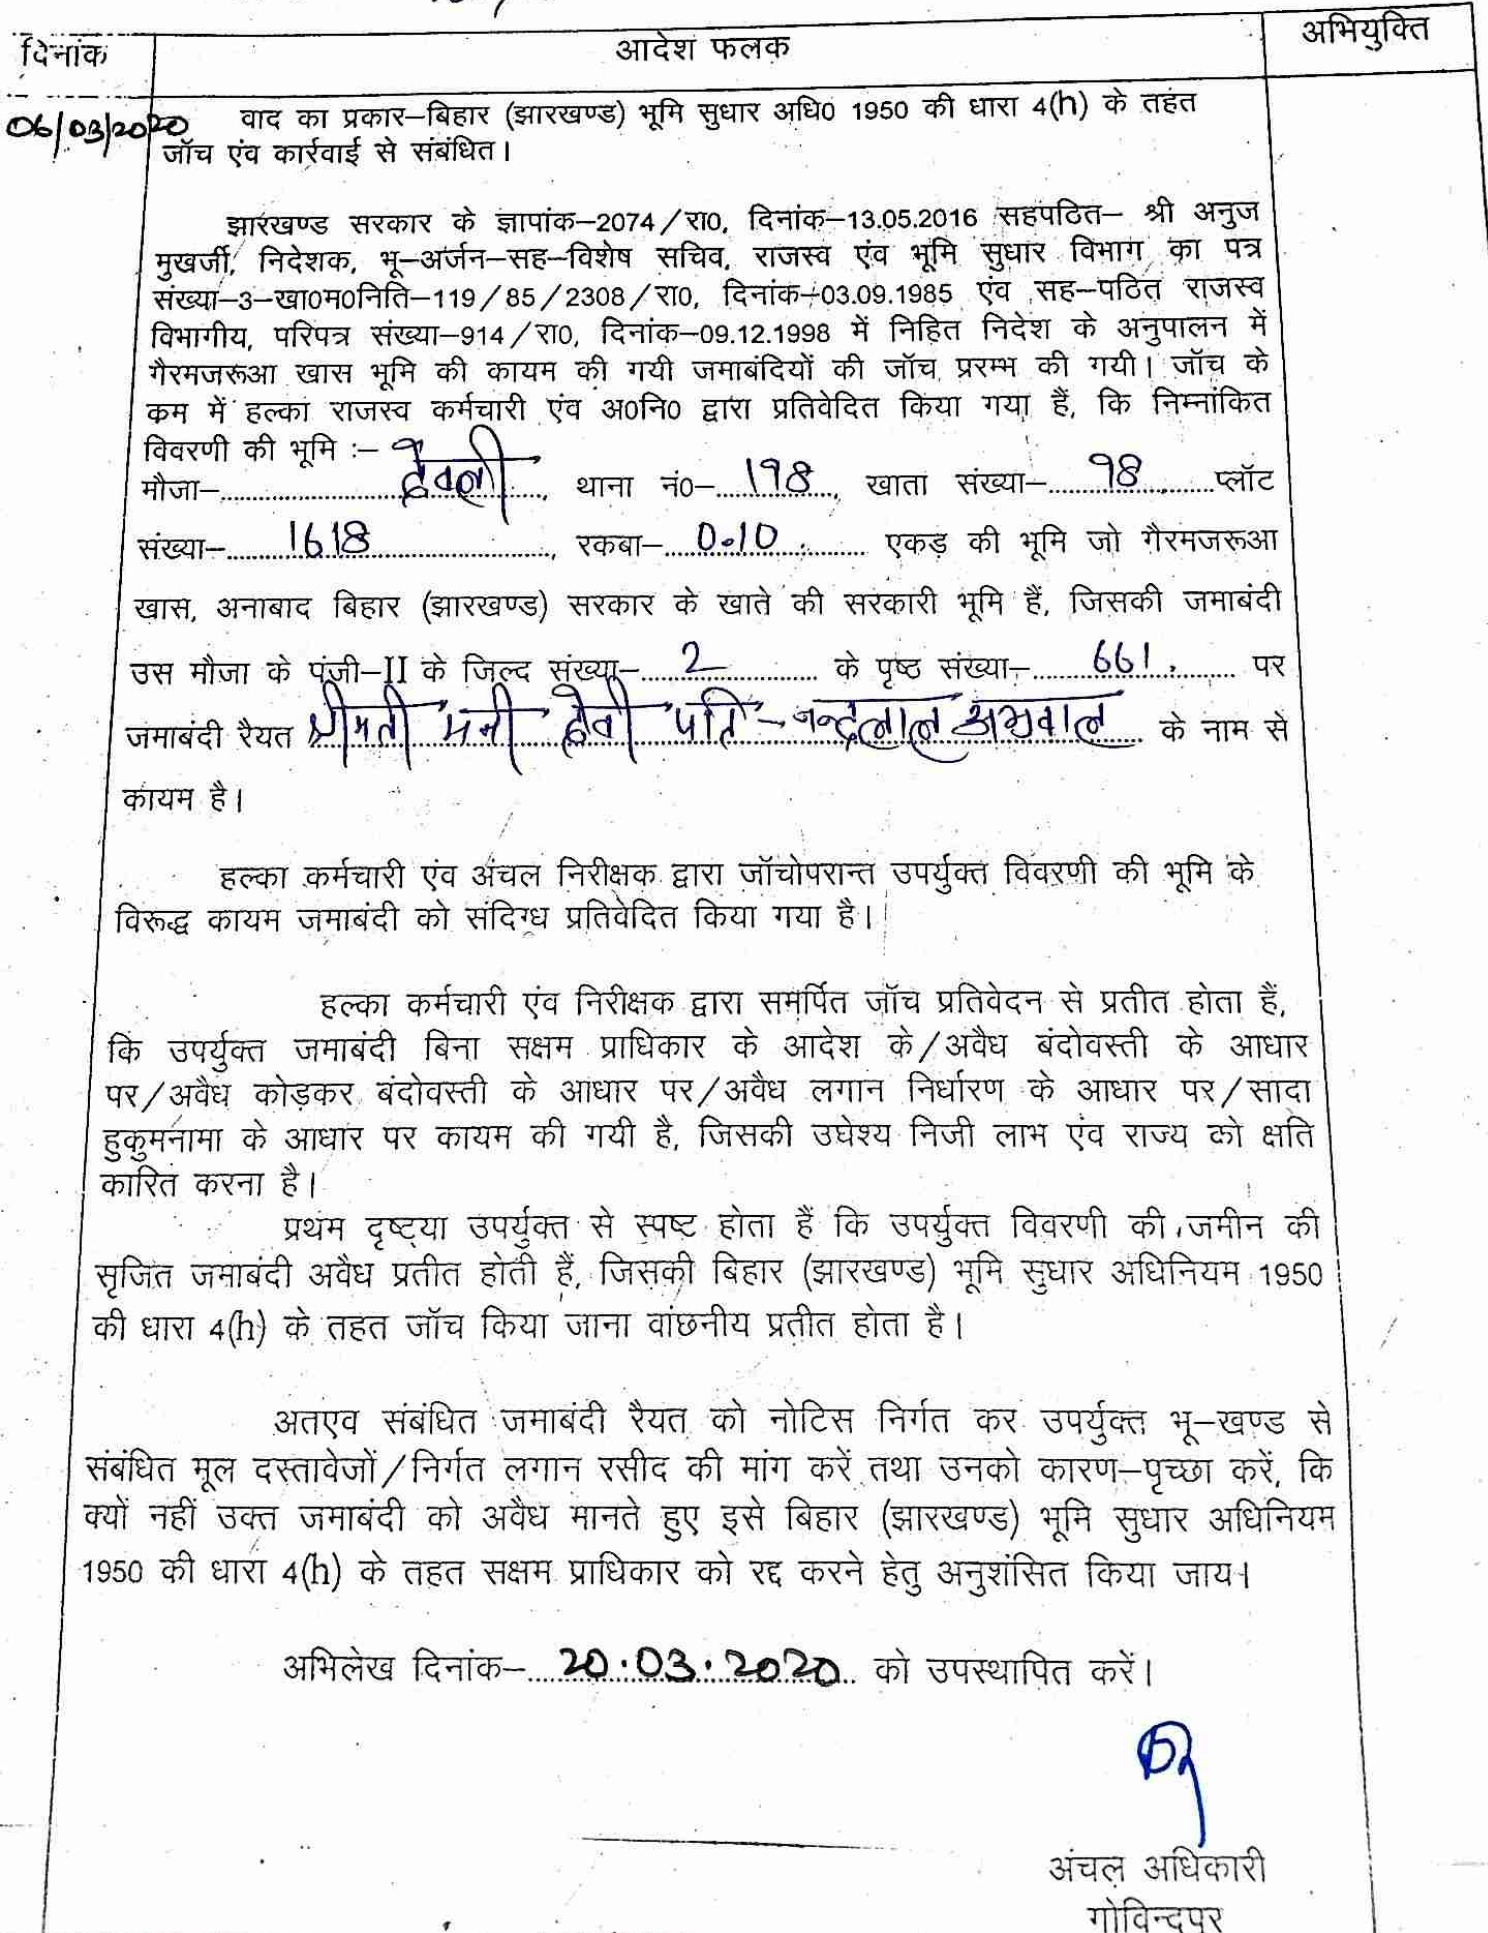 दिनांक आदेश फलक अभियुक्ति
06/03/2020 वाद का प्रकार–बिहार (झारखण्ड) भूमि सुधार अधि0 1950 की धारा 4(h) के तहत
जॉच एंव कार्रवाई से संबंधित।
झारखण्ड सरकार के ज्ञापांक–2074/रा0, दिनांक–13.05.2016 सहपठित– श्री अनुज
मुखर्जी, निदेशक, भू–अर्जन–सह–विशेष सचिव, राजस्व एंव भूमि सुधार विभाग का पत्र
संख्या–3–खा0म0निति–119/85/2308/रा0, दिनांक–03.09.1985 एंव सह–पठित राजस्व
विभागीय, परिपत्र संख्या–914/रा0, दिनांक–09.12.1998 में निहित निदेश के अनुपालन में
गैरमजरूआ खास भूमि की कायम की गयी जमाबंदियों की जॉच प्ररम्भ की गयी। जॉच के
कम में हल्का राजस्व कर्मचारी एंव अ0नि0 द्वारा प्रतिवेदित किया गया हैं, कि निम्नांकित
विवरणी की भूमि :–
मौजा–........देवली........, थाना नं0–...198..., खाता संख्या–....98....प्लॉट
संख्या–......1618......, रकबा–...0.10...... एकड़ की भूमि जो गैरमजरूआ
खास, अनाबाद बिहार (झारखण्ड) सरकार के खाते की सरकारी भूमि हैं, जिसकी जमाबंदी
उस मौजा के पंजी–II के जिल्द संख्या–....2.... के पृष्ठ संख्या–....661.... पर
जमाबंदी रैयत श्रीमती मनी देवी पति – नन्दलाल अग्रवाल के नाम से
कायम है।
हल्का कर्मचारी एंव अंचल निरीक्षक द्वारा जॉचोपरान्त उपर्युक्त विवरणी की भूमि के
विरूद्ध कायम जमाबंदी को संदिग्ध प्रतिवेदित किया गया है।
हल्का कर्मचारी एंव निरीक्षक द्वारा समर्पित जॉच प्रतिवेदन से प्रतीत होता हैं,
कि उपर्युक्त जमाबंदी बिना सक्षम प्राधिकार के आदेश के/अवैध बंदोवस्ती के आधार
पर/अवैध कोड़कर बंदोवस्ती के आधार पर/अवैध लगान निर्धारण के आधार पर/सादा
हुकुमनामा के आधार पर कायम की गयी है, जिसकी उघेश्य निजी लाभ एंव राज्य को क्षति
कारित करना है।
प्रथम दृष्ट्या उपर्युक्त से स्पष्ट होता हैं कि उपर्युक्त विवरणी की जमीन की
सृजित जमाबंदी अवैध प्रतीत होती हैं, जिसकी बिहार (झारखण्ड) भूमि सुधार अधिनियम 1950
की धारा 4(h) के तहत जॉच किया जाना वांछनीय प्रतीत होता है।
अतएव संबंधित जमाबंदी रैयत को नोटिस निर्गत कर उपर्युक्त भू–खण्ड से
संबंधित मूल दस्तावेजों/निर्गत लगान रसीद की मांग करें तथा उनको कारण–पृच्छा करें, कि
क्यों नहीं उक्त जमाबंदी को अवैध मानते हुए इसे बिहार (झारखण्ड) भूमि सुधार अधिनियम
1950 की धारा 4(h) के तहत सक्षम प्राधिकार को रद्द करने हेतु अनुशंसित किया जाय।
अभिलेख दिनांक–....20.03.2020.. को उपस्थापित करें।
अंचल अधिकारी
गोविन्दपुर